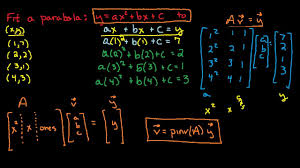 Fit a parabola: y = ax² + bx + c to
(x,y)
(1,7)
(2,2)
(3,1)
(4,3)
ax² + bx + c = y
a(1)² + b(1) + c = 7
a(2)² + b(2) + c = 2
a(3)² + b(3) + c = 1
a(4)² + b(4) + c = 3
A v⃗ = y⃗
1² 1 1
2² 2 1
3² 3 1
4² 4 1
a b c
=
7 2 1 3
x² x y
A v⃗ y⃗
x² x ones
a b c
= y
v⃗ = pinv(A) y⃗